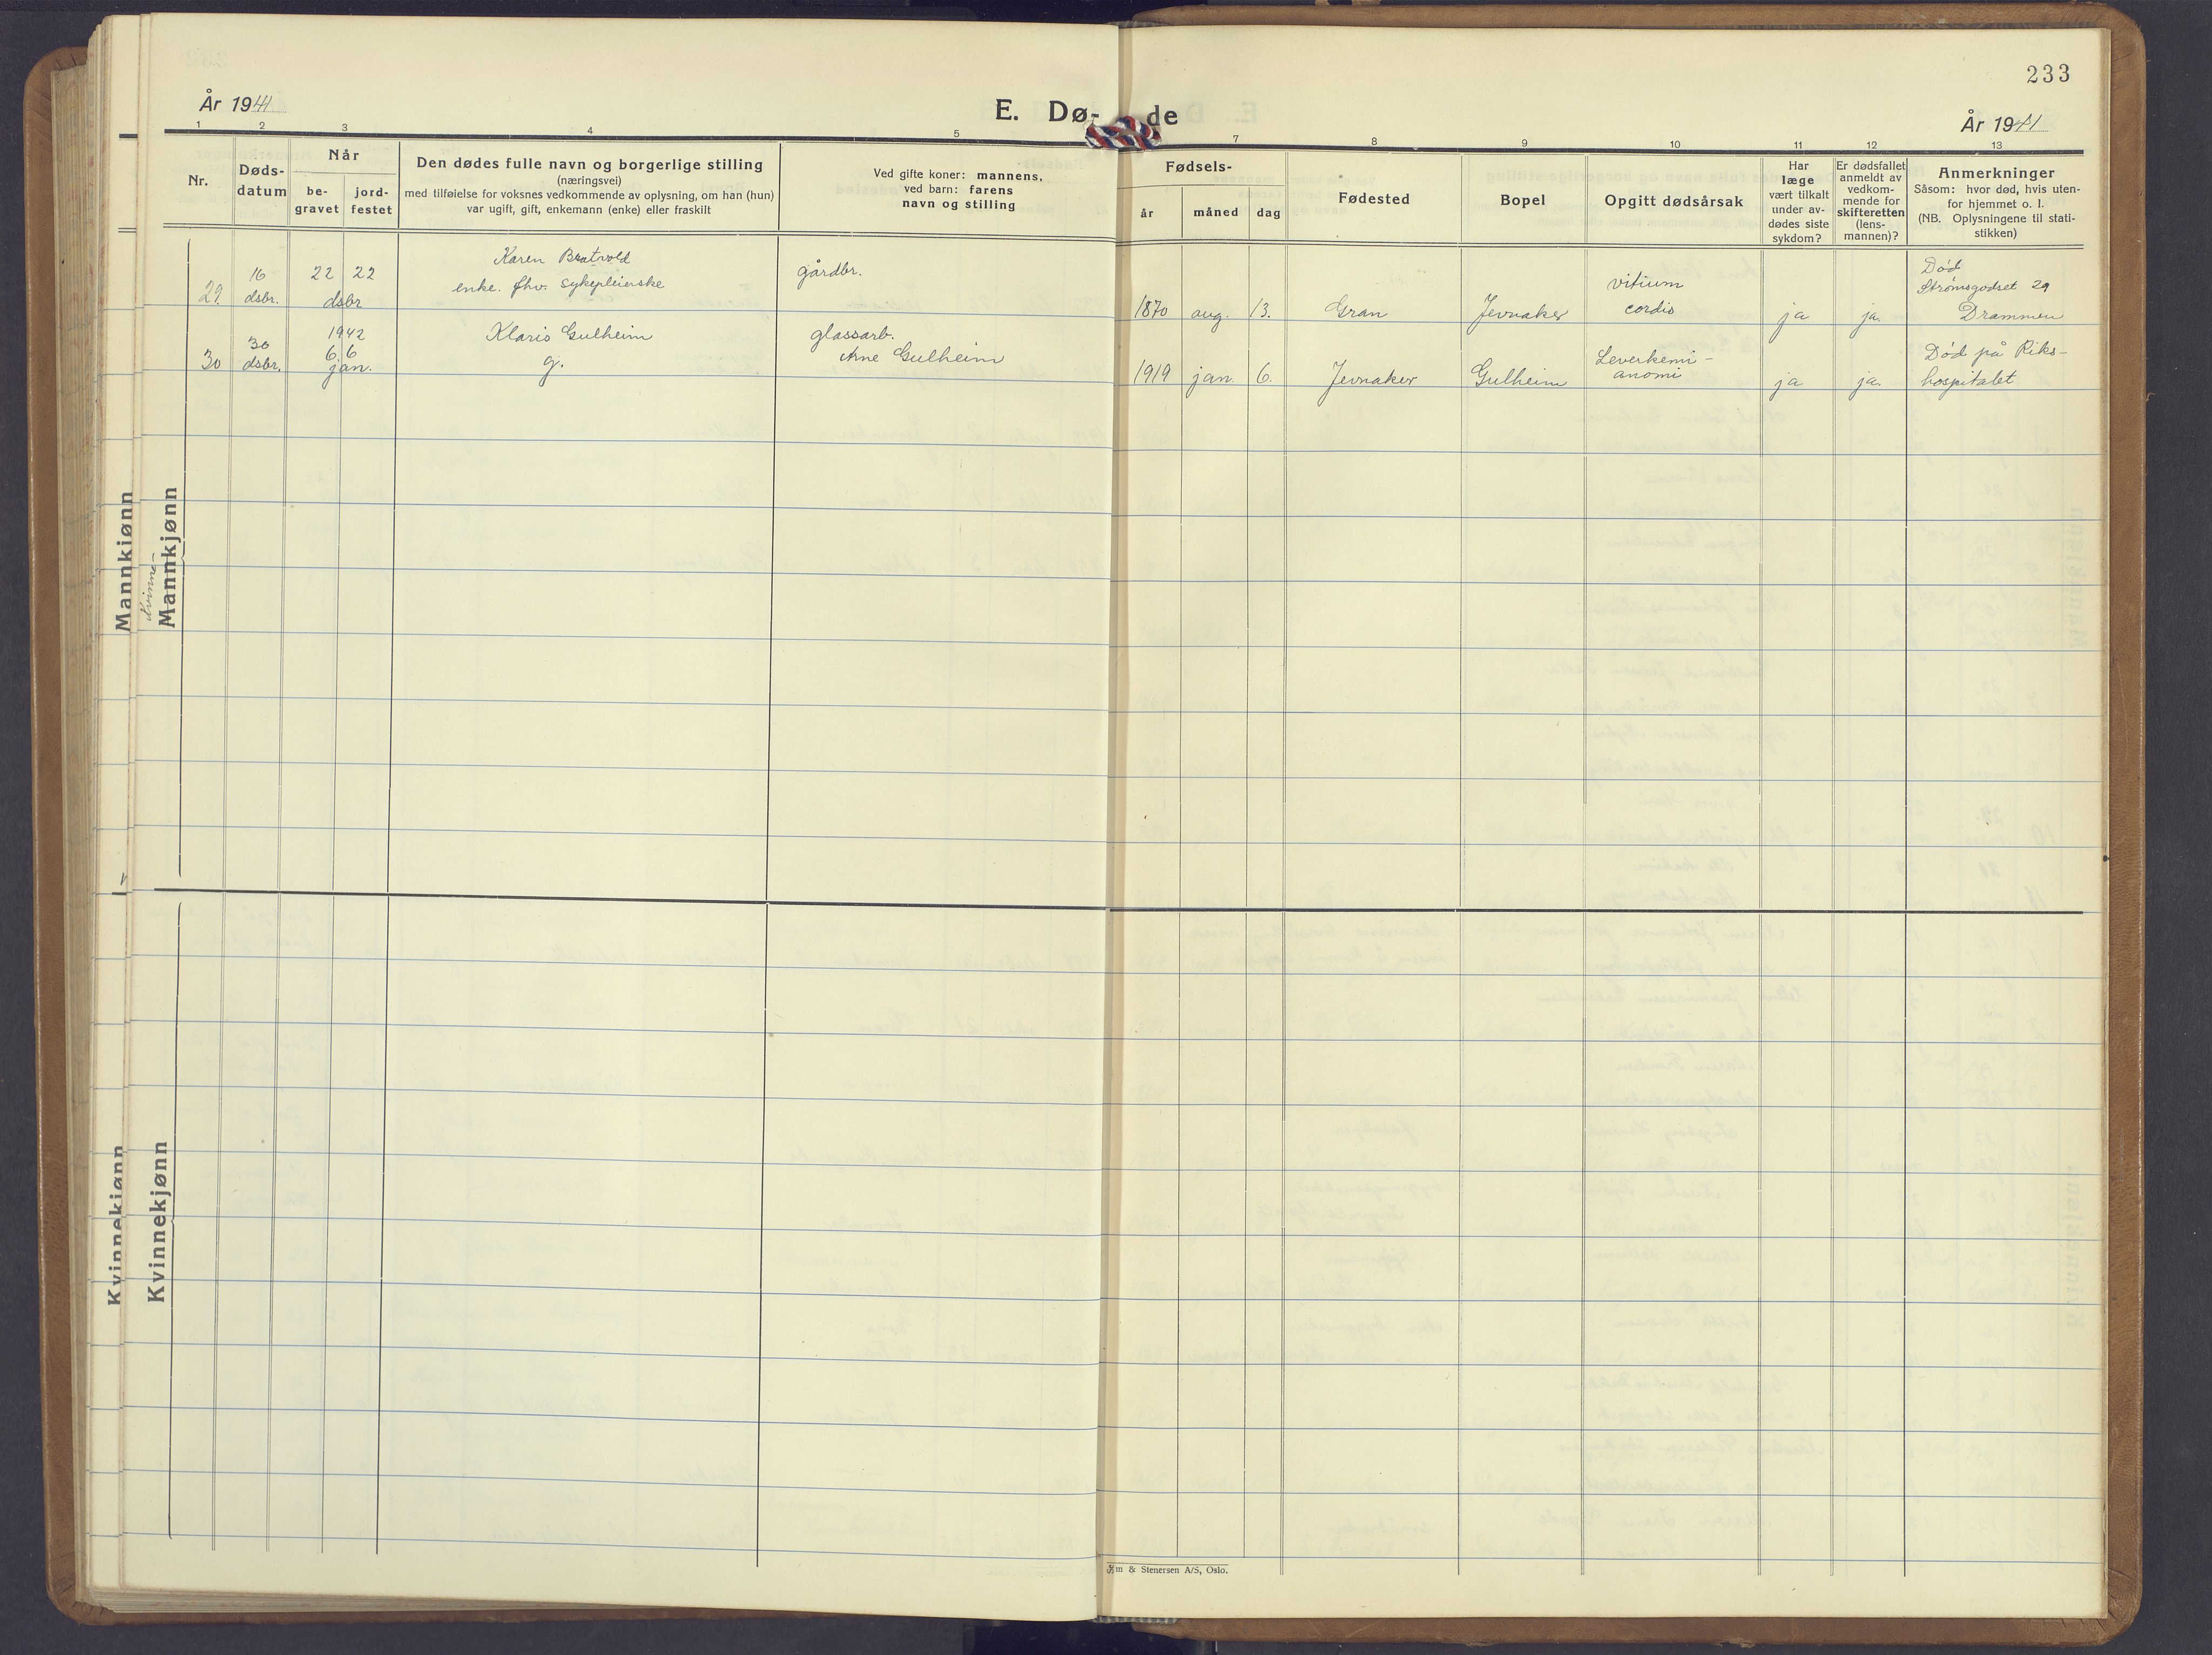 233
År 1941
E. Dø- de
År 1941
1 2 3 4 5 7 8 9 10 11 12 13
Nr.
Døds-
datum
Når
be-
gravet
jord-
festet
Den dødes fulle navn og borgerlige stilling
(næringsvei)
med tilføielse for voksnes vedkommende av oplysning, om han (hun)
var ugift, gift, enkemann (enke) eller fraskilt
Ved gifte koner: mannens,
ved barn: farens
navn og stilling
Fødsels-
år måned dag
Fødested
Bopel
Opgitt dødsårsak
Har
læge
vært tilkalt
under av-
dødes siste
sykdom?
Er dødsfallet
anmeldt av
vedkom-
mende for
skifteretten
(lens-
mannen)?
Anmerkninger
Såsom: hvor død, hvis uten-
for hjemmet o. l.
(NB. Oplysningene til stati-
stikken)
29.
16
dsbr.
22 22
dsbr
Karen Bratvold
enke. fhv. sykepleierske
gårdbr.
1870 aug. 13.
Gran
Jevnaker
vitium
cordis
ja
ja.
Død
Strømsgodset 29
Drammen
30
30
dsbr.
1942
6. 6
jan.
Klaris Gulheim
g.
glassarb.
Arne Gulheim
1919 jan. 6.
Jevnaker
Gulheim
Leverkemi-
anomi
ja
ja.
Død på Riks-
hospitalet
Mannkjønn
Kvinne-
Mannkjønn
Kvinnekjønn
Kvinnekjønn
& Stenersen A/S, Oslo.